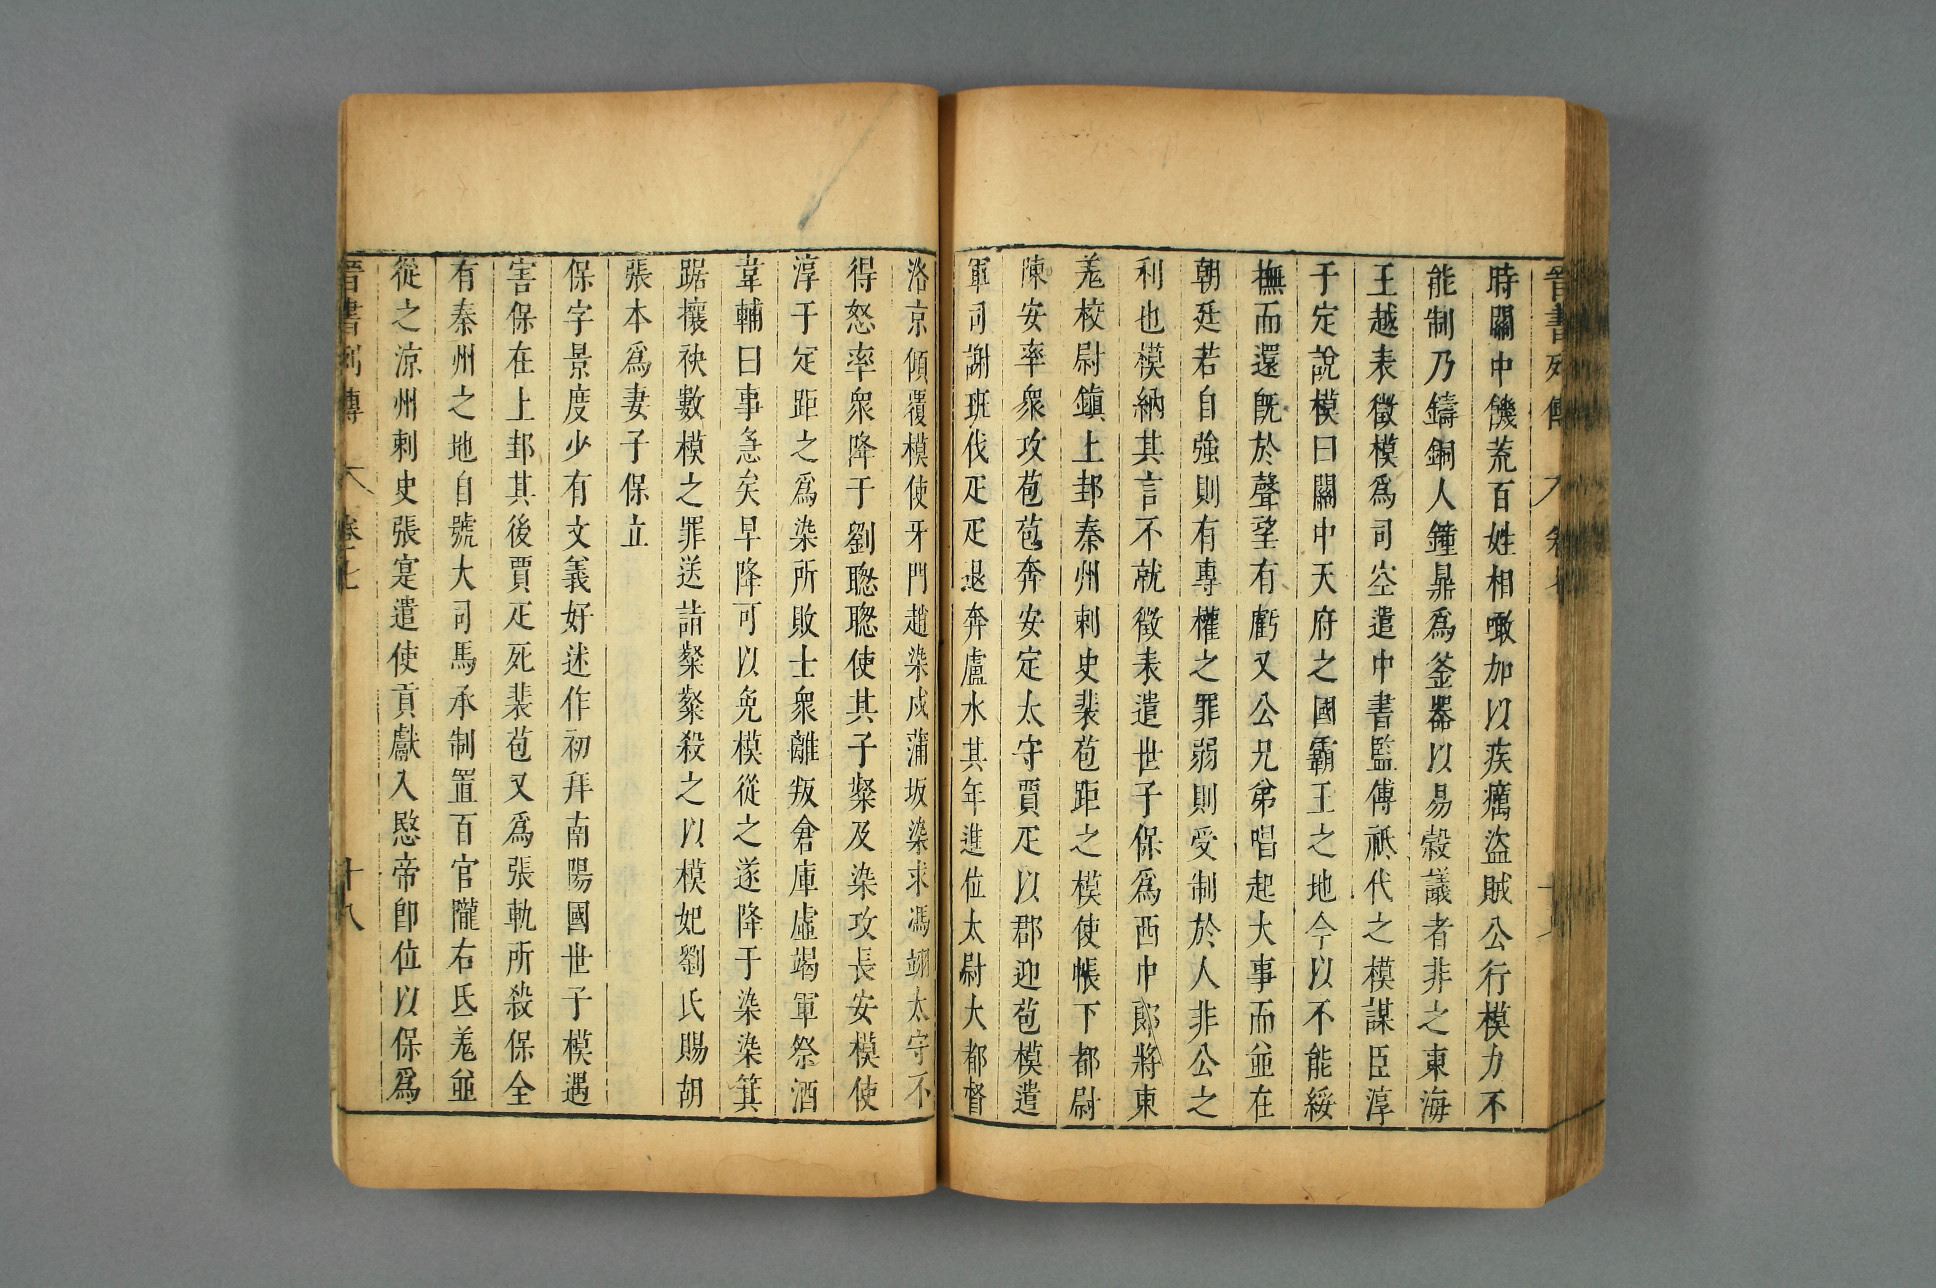 時關中饑荒百姓相噉加以疾癘盜賊公行模力不
能制乃鑄銅人鐘鼎爲釜器以易穀議者非之東海
王越表徵模爲司空遣中書監傅祗代之模謀臣淳
于定說模曰關中天府之國霸王之地今以不能綏
撫而還旣於聲望有虧又公兄弟唱起大事而並在
朝廷若自強則有專權之罪弱則受制於人非公之
利也模納其言不就徵表遣世子保爲西中郎將東
羗校尉鎮上邽秦州刺史裴苞距之模使帳下都尉
陳安率衆攻苞苞奔安定太守賈疋以郡迎苞模遣
軍司謝班伐疋疋退奔盧水其年進位太尉大都督
洛京傾覆模使牙門趙染戍蒲坂染求馮翊太守不
得怒率衆降于劉聦聦使其子粲及染攻長安模使
淳于定距之爲染所敗士衆離叛倉庫虛竭軍祭酒
韋輔曰事急矣早降可以免模從之遂降于染染箕
踞攘袂數模之罪送詣粲粲殺之以模妃劉氏賜胡
張本爲妻子保立
保字景度少有文義好述作初拜南陽國世子模遇
害保在上邽其後賈疋死裴苞又爲張軌所殺保全
有秦州之地自號大司馬承制置百官隴右氐羗並
從之涼州刺史張寔遣使貢獻入愍帝卽位以保爲
晉書列傳 卷七 十八